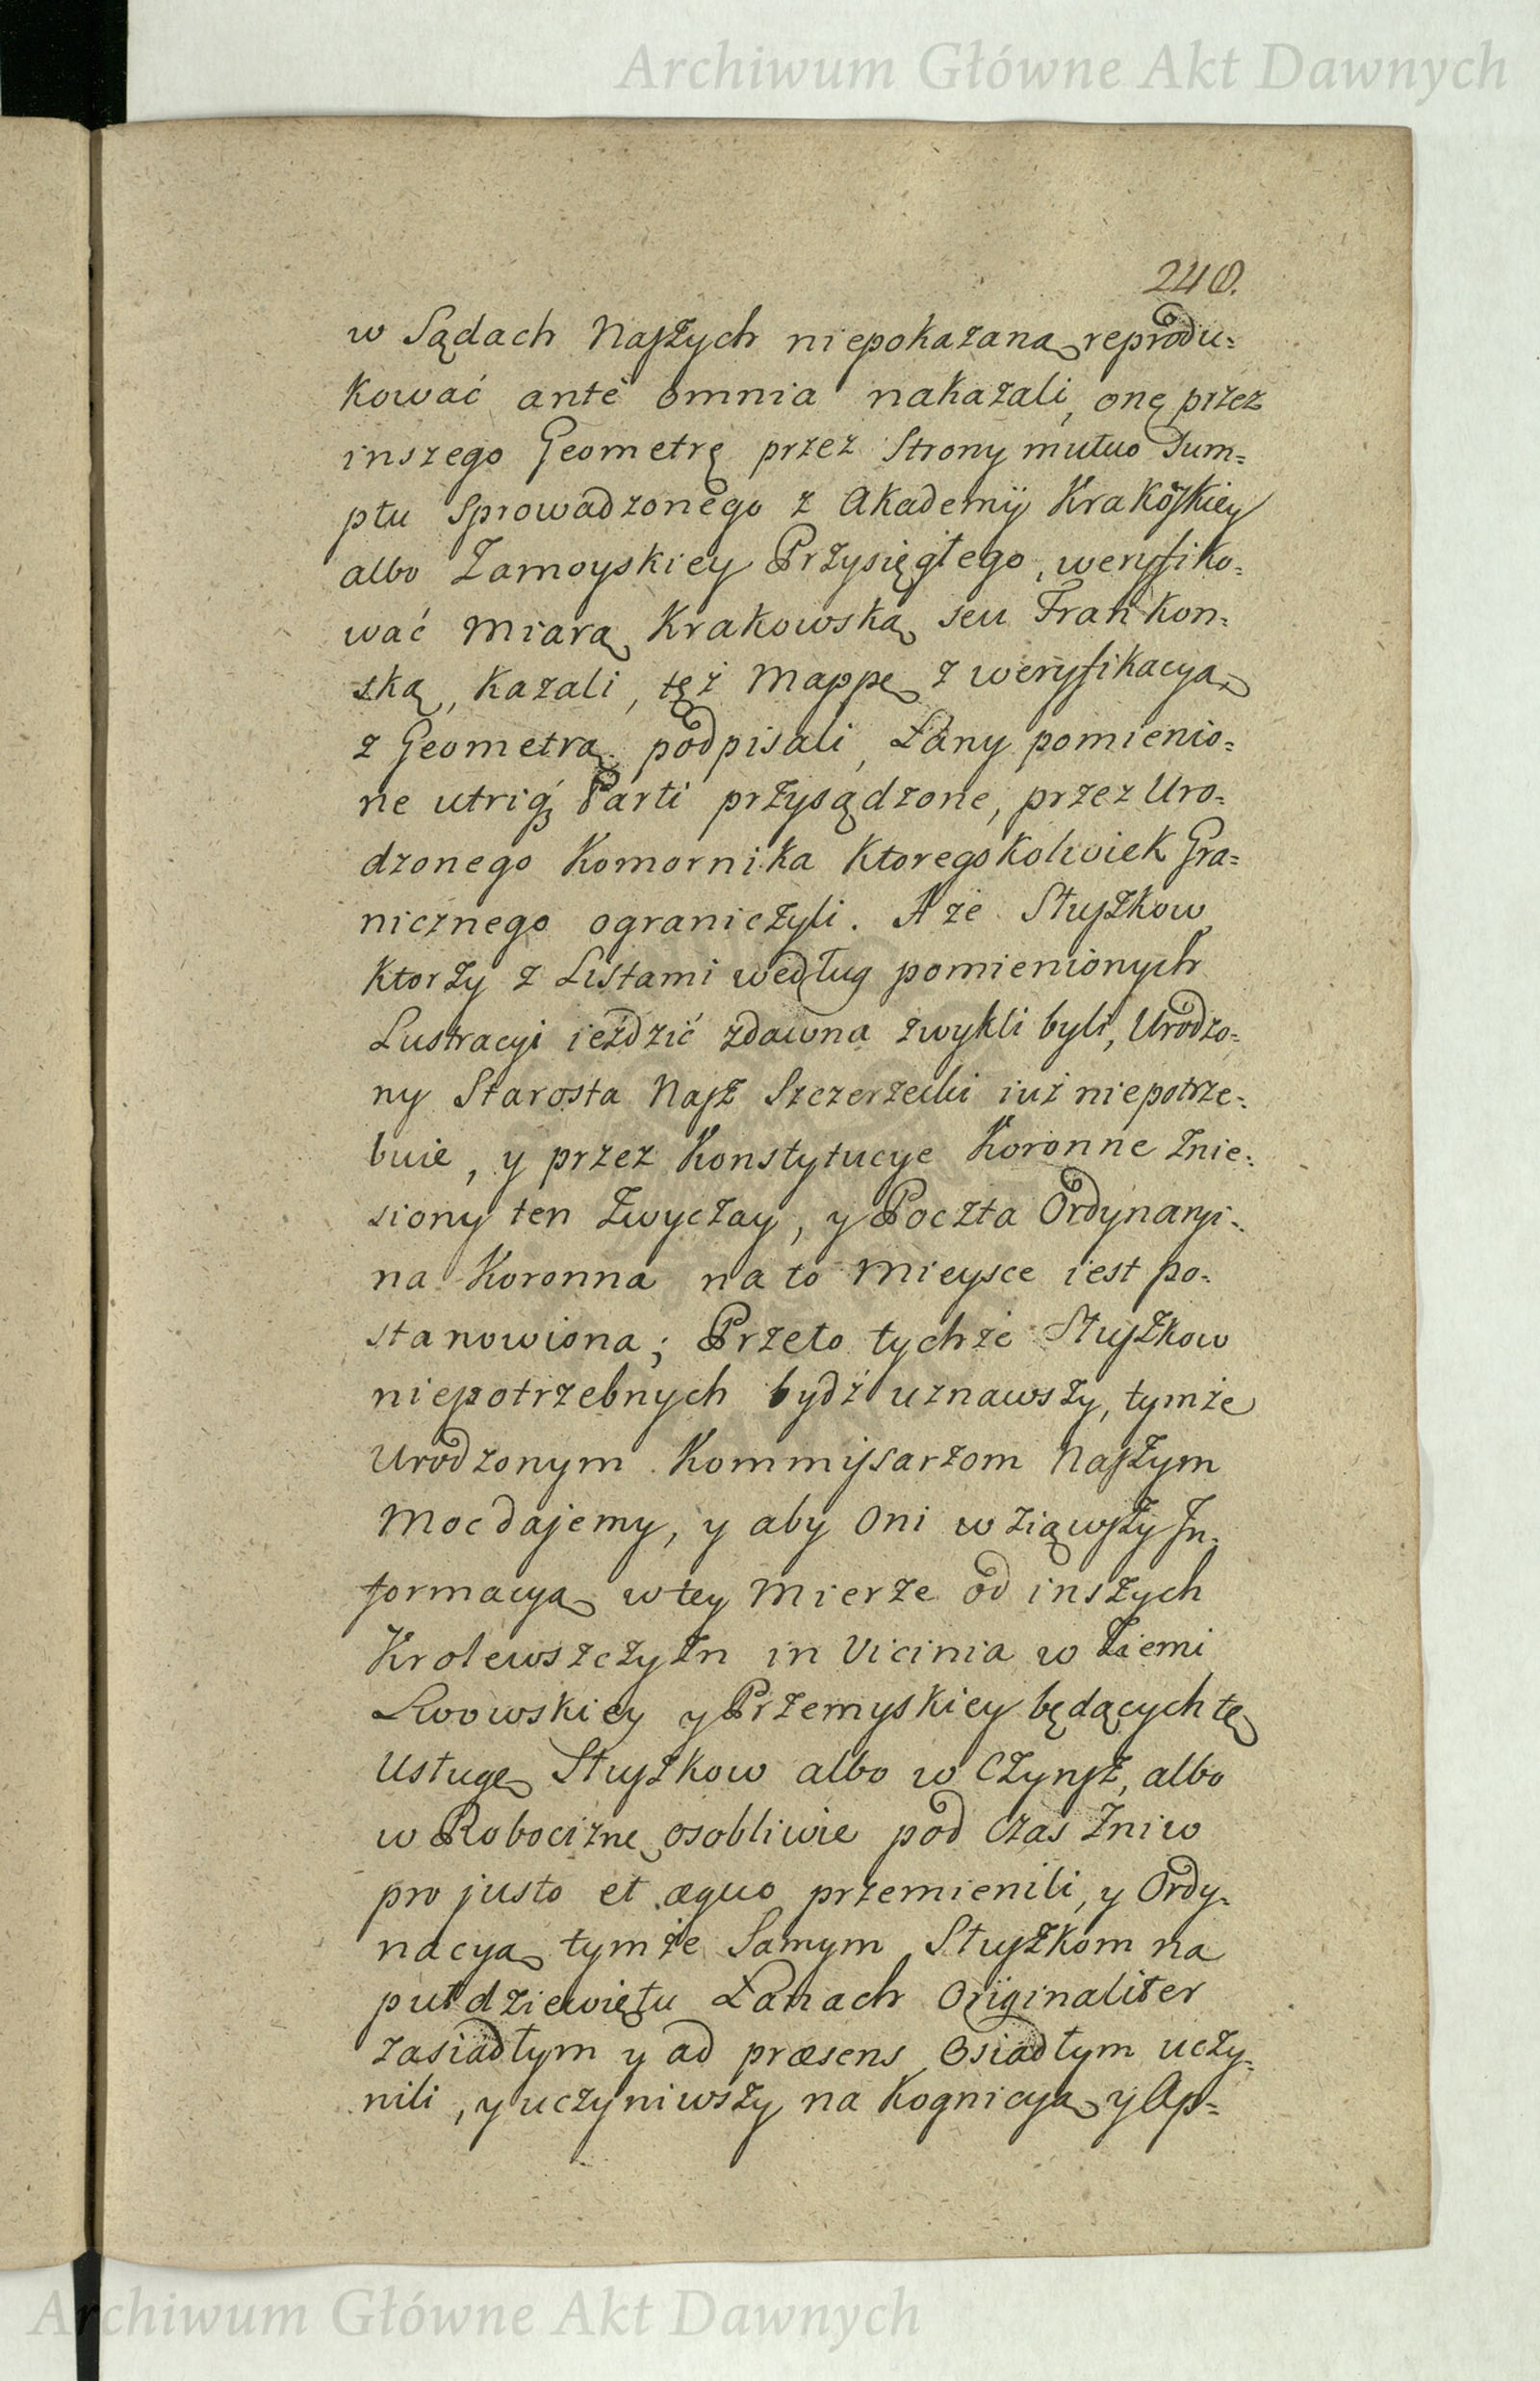 Archiwum Główne Akt Dawnych
240.
w Sądach Naszych niepokazaną reprodu=
kować ante omnia nakazali, onę przez
inszego Geometrę przez Strony mutuo Sum=
ptu Sprowadzonego z Akademij Krakoskiey
albo Zamoyskiey Przysięgłego, weryfiko=
wać Miarą Krakowską seu Frankon=
ską, kazali, tęż Mappę z weryfikacyą
z Geometrą podpisali, Łany pomienio=
ne utriq3 Parti przysądzone, przez Uro=
dzonego Komornika ktoregokolwiek Gra=
nicznego ograniczyli. A że Służkow
ktorzy z Listami według pomienionych
Lustracyi ieździć zdawna zwykli byli, Urodzo=
ny Starosta Nasz Szczerzecki iuż niepotrze=
buie, y przez Konstytucye Koronne Znie=
siony ten Zwyczay, y Poczta Ordynaryi=
na Koronna na to Mieysce iest po=
stanowiona; Przeto tychże Służkow
niepotrzebnych bydź uznawszy, tymże
Urodzonym Kommissarzom Naszym
Moc dajemy, y aby Oni wziąwszy In=
formacyą w tey Mierze od inszych
Krolewszczyzn in Vicinia w Ziemi
Lwowskiey y Przemyskiey będących tę
Usługę Służkow albo w Czynsz, albo
w Robociznę osobliwie pod Czas Żniw
pro justo et æquo przemienili, y Ordy=
nacyą tymże Samym Służkom na
puł dziewiętu Łanach Originaliter
zasiadłym y ad præsens Osiadłym uczy=
nili, y uczyniwszy na Kognicyą y Ap=
Archiwum Główne Akt Dawnych